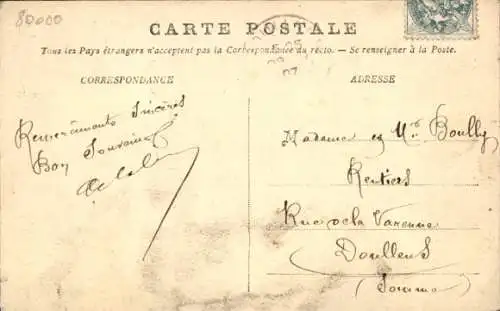 80000
CARTE POSTALE
Tous les Pays étrangers n'acceptent pas la Correspondance au recto. — Se renseigner à la Poste.
CORRESPONDANCE
ADRESSE
Remerciments Sincères
Bon Souvenir
Madame et Mr Boully
Rentiers
Rue de la Varenne
Doullens
(Somme)